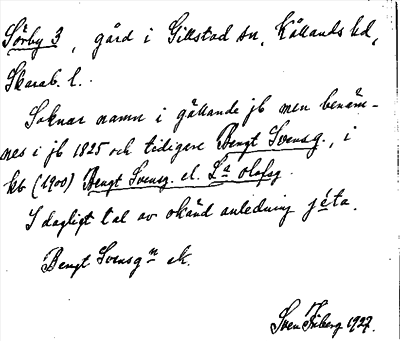 Sörby 3, gård i Gillstad sn, Kållands hd,
Skarab. l.
Saknar namn i gällande jb men benäm-
nes i jb 1825 och tidigare Bengt Svensg., i
kb (1900) Bengt Svensg. el. La Olofsg.
I dagligt tal av okänd anledning jéta.
Bengt Svensg n ek.
Sven Friberg 1927.